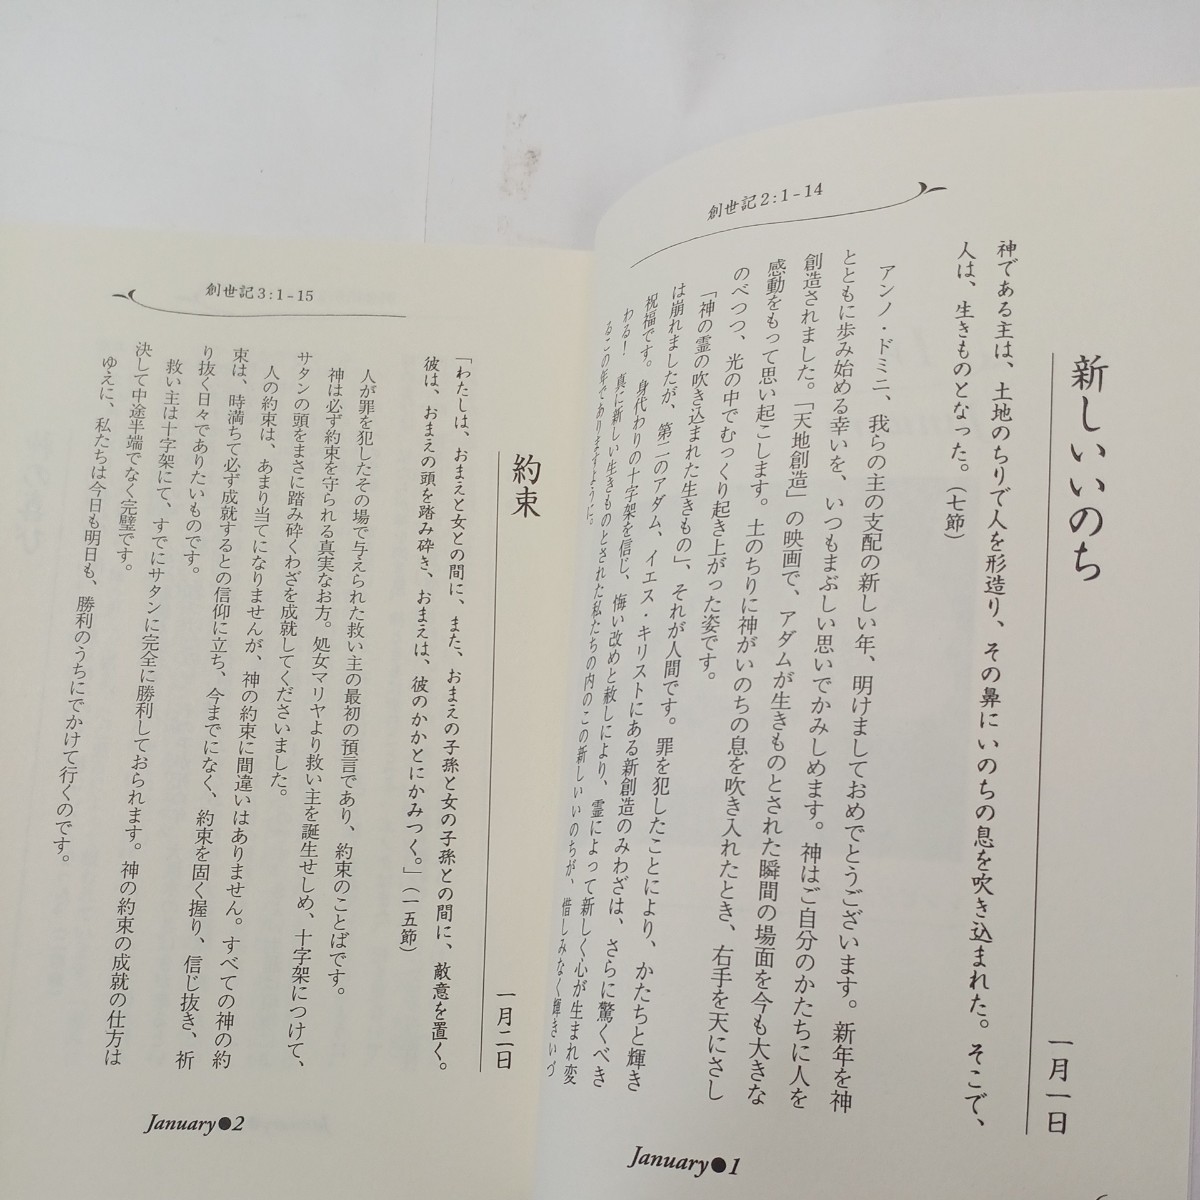 創世記2：1－14
新しいいのち
一月一日
神である主は、土地のちりで人を形造り、その鼻にいのちの息を吹き込まれた。そこで、
人は、生きものとなった。（七節）
アンノ・ドミニ、我らの主の支配の新しい年、明けましておめでとうございます。新年を神
とともに歩み始める幸いを、いつもまぶしい思いでかみしめます。神はご自分のかたちに人を
創造されました。「天地創造」の映画で、アダムが生きものとされた瞬間の場面を今も大きな
感動をもって思い起こします。土のちりに神がいのちの息を吹き入れたとき、右手を天にさし
のべつつ、光の中でむっくり起き上がった姿です。
「神の霊の吹き込まれた生きもの」、それが人間です。罪を犯したことにより、かたちと輝き
は崩れましたが、第二のアダム、イエス・キリストにある新創造のみわざは、さらに驚くべき
祝福です。身代わりの十字架を信じ、悔い改めと赦しにより、霊によって新しく心が生まれ変
わる！　真に新しい生きものとされた私たちの内のこの新しいいのちが、惜しみなく輝きいづ
るこの年でありますように。
January●1
創世記3：1－15
約束
一月二日
「わたしは、おまえと女との間に、また、おまえの子孫と女の子孫との間に、敵意を置く。
彼は、おまえの頭を踏み砕き、おまえは、彼のかかとにかみつく。」（一五節）
人が罪を犯したその場で与えられた救い主の最初の預言であり、約束のことばです。
神は必ず約束を守られる真実なお方。処女マリヤより救い主を誕生せしめ、十字架につけて、
サタンの頭をまさに踏み砕くわざを成就してくださいました。
人の約束は、あまり当てになりませんが、神の約束に間違いはありません。すべての神の約
束は、時満ちて必ず成就するとの信仰に立ち、今までになく、約束を固く握り、信じ抜き、祈
り抜く日々でありたいものです。
救い主は十字架にて、すでにサタンに完全に勝利しておられます。神の約束の成就の仕方は
決して中途半端でなく完璧です。
ゆえに、私たちは今日も明日も、勝利のうちにでかけて行くのです。
January●2